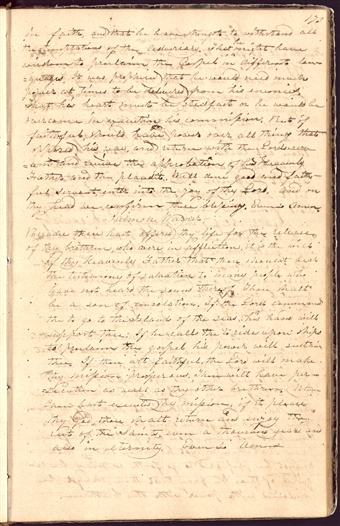 173
in faith, and that he have strength to withstand all
the temptations of the adversary, that might have
wisdom to proclaim the Gospel in different lan-
guages. It was prophesied that he would need much
power at times to be delivered from his enemies,
that his heart must be steadfast or he would be
overcome in executing his commission. But if
faithful, should have power over all things that
opposed his way, and return with the
and receive the approbation of his Heavenly
Father and the plaudits, Well done good and faith-
ful servant, enter into the joy of thy Lord, and on
thy head we confirm these blessings, Even so Amen.
Salmon Warner
Because thou hast offered thy life for the release
of thy brethren, who were in affliction, it is the will
of thy Heavenly Father that thou shouldst bear
the testimony of salvation to many people who
have not heard the sound thereof. Thou shalt
be a son of consolation. If the Lord command
thee to go to the Islands of the sea, his hand will
support thee. If he calls thee to ride upon ships
to proclaim the gospel his power will sustain
thee. If thou art faithful, the Lord will make
thy mission prosperous. Thou wilt have per-
secution as well as thy other brethren. When
thou hast executed thy mission, if it please
thy God, thou shalt return and enjoy the
of the saints, even a thousand years and
also in eternity. Even so Amen